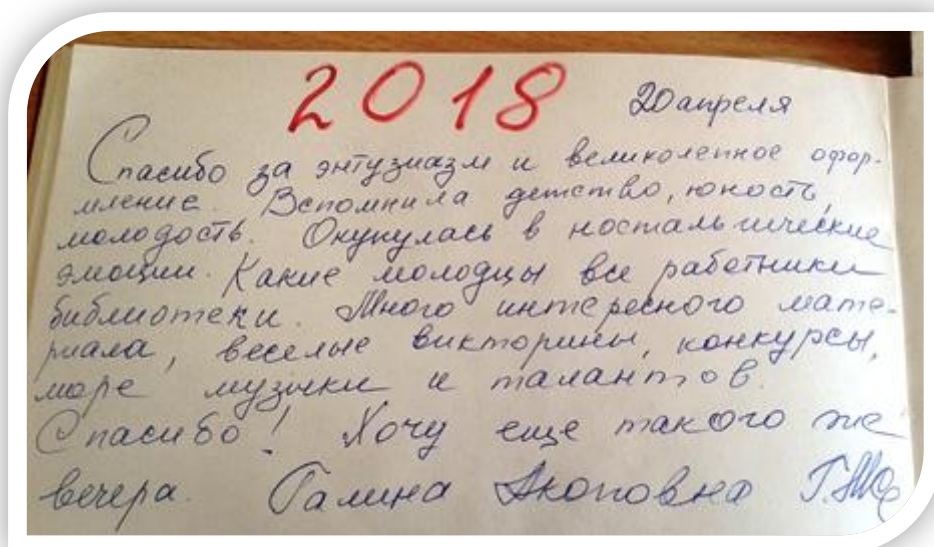 2018 20 апреля
Спасибо за энтузиазм и великолепное офор-
мление. Вспомнила детство, юность,
молодость. Окунулась в ностальгические
эмоции. Какие молодцы все работники
библиотеки. Много интересного мате-
риала, веселые викторины, конкурсы,
море музыки и талантов.
Спасибо! Хочу еще такого же
вечера. Галина Акоповна